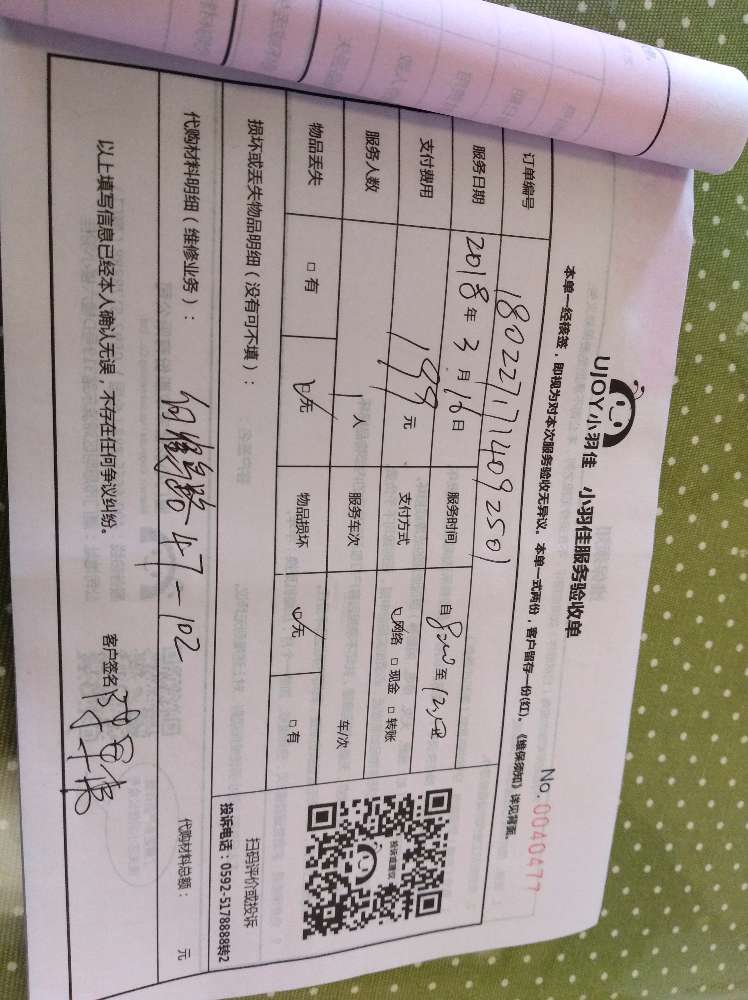 UJOY小羽佳 小羽佳服务验收单
No. 0040477
本单一经核签，即视为对本次服务验收无异议。本单一式两份，客户留存一份(红)。《维保须知》详见背面。
订单编号 1802271714092501
服务日期 2018年3月16日 服务时间 自8:00至12:00
支付费用 199元 支付方式 网络 □ 现金 □ 转账
服务人数 1人 服务车次 车/次
物品丢失 □ 有 无 物品损坏 无 □ 有
损坏或丢失物品明细（没有可不填）：
投诉或建议
扫码评价或投诉
投诉电话：0592-5178888转2
代购材料明细（维修业务）： 代购材料总额： 元
路47-102
以上填写信息已经本人确认无误，不存在任何争议纠纷。 客户签名